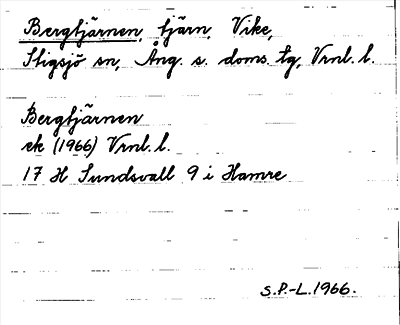 Bergtjärnen, tjärn, Vike,
Stigsjö sn, Ång. s. doms. tg, Vrnl. l.
Bergtjärnen
ek (1966) Vrnl. l.
17 H Sundsvall 9 i Hamre
S.P.-L. 1966.